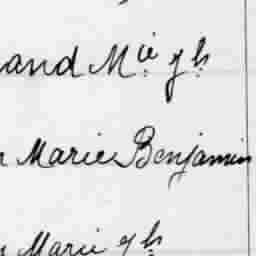 and M.ie y h.
Marie Benjamin
Marie y h.